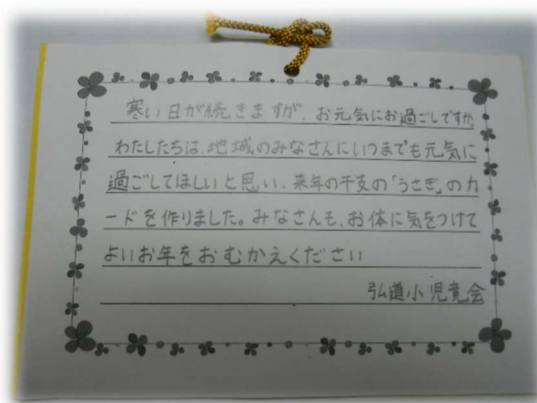 寒い日が続きますが、お元気にお過ごしですか
わたしたちは、地域のみなさんにいつまでも元気に
過ごしてほしいと思い、来年の干支の「うさぎ」のカ
ードを作りました。みなさんも、お体に気をつけて
よいお年をおむかえください
弘道小児童会